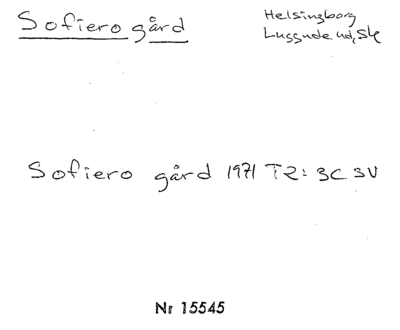 Sofiero gård
Helsingborg
Luggude hd, Sk
Sofiero gård 1971 T2: 3C SV
Nr 15545